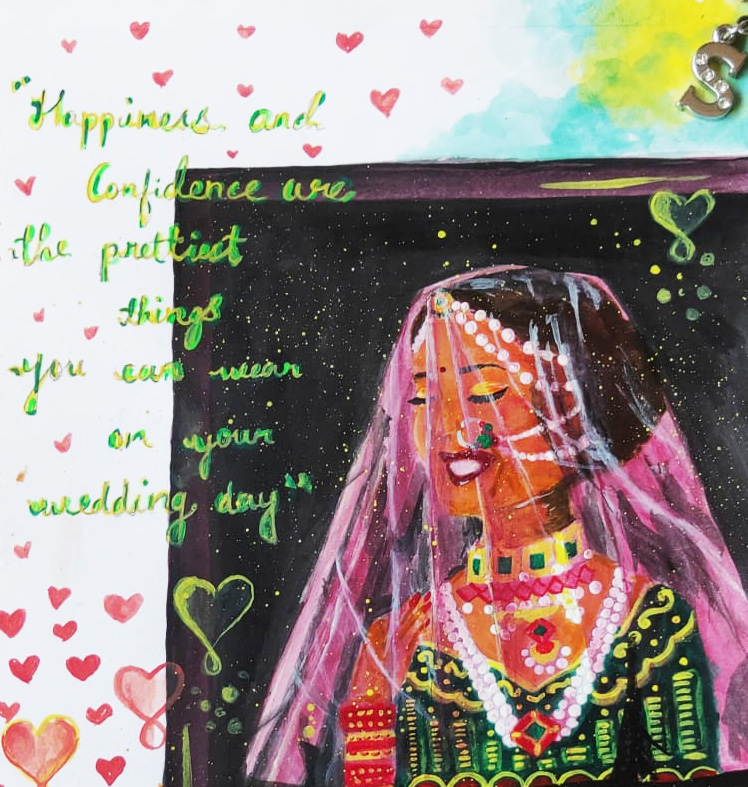 "Happiness and
Confidence are
the prettiest
things
you can wear
on your
wedding day"
S